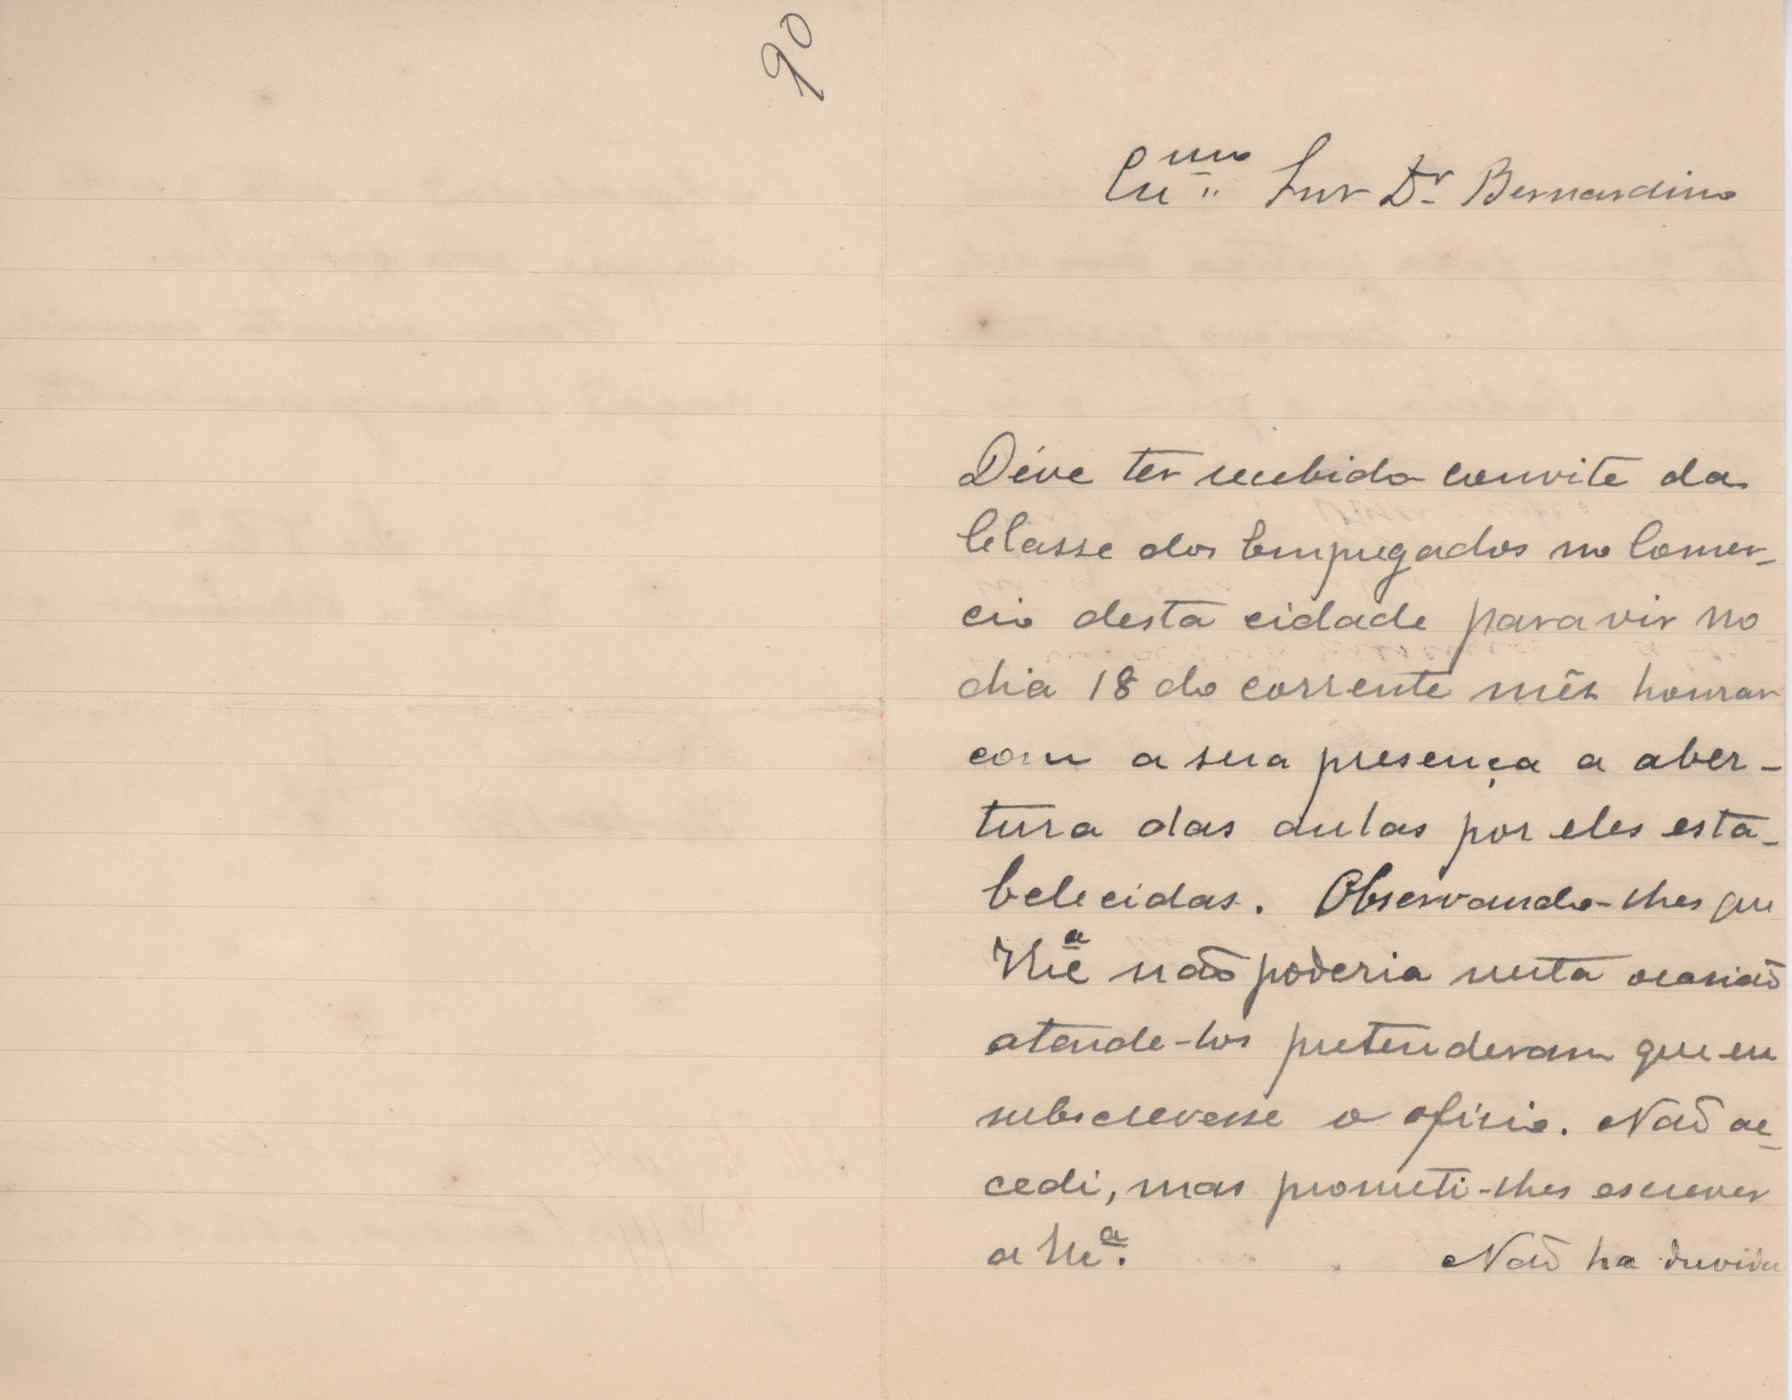 90
Exmo Snr Dr Bernardino
Déve ter recebido convite da
Classe dos Empregados no Comer-
cio desta cidade para vir no
dia 18 do corrente mês honrar
com a sua presença a aber-
tura das aulas por eles esta-
belecidas. Observando-lhes que
não poderia nesta ocasião
atende-los pretenderam que eu
subscrevesse o oficio. Não ac-
cedi, mas prometi-lhes escrever
a Não ha duvida